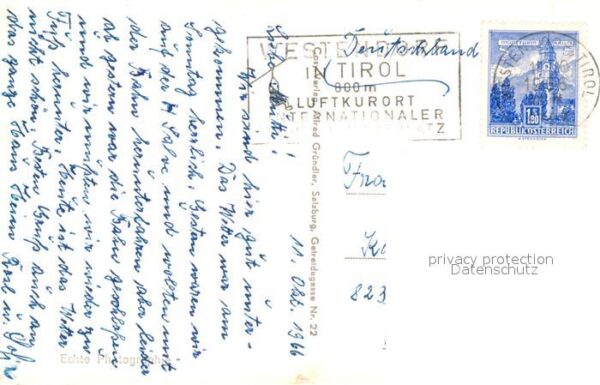 WESTENDORF
IN TIROL
800 m
LUFTKURORT
INTERNATIONALER
Deutschland
WESTENDORF TIROL
1.80
REPUBLIK ÖSTERREICH
11. Okt. 1966
Wir sind hier gut unter-
gekommen. Das Wetter war am
Sonntag herrlich, gestern waren wir
auf der H. Salve und wollten mit
der Bahn herunterfahren aber leider
ab gestern war die Bahn geschlossen
und wir mußten wir wieder zu
Fuß herunter. Heute ist das Wetter
nicht schön. Besten Gruß auch an
das ganze Haus
Cosy-Verlag Alfred Gründler, Salzburg, Getreidegasse Nr. 22
Echte Photographie
Fra
823
privacy protection
Datenschutz